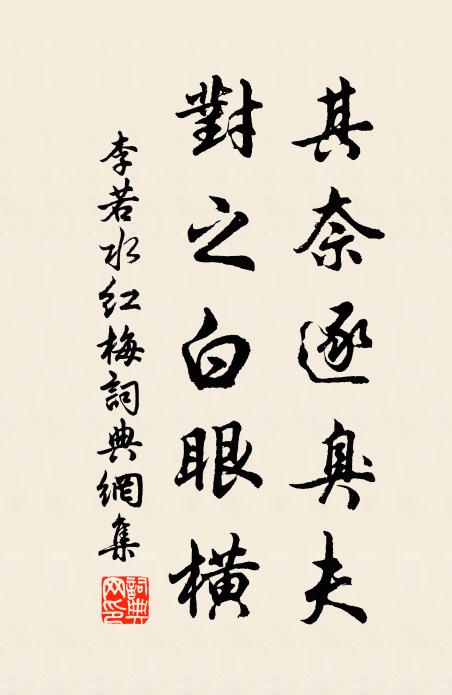 其奈逐臭夫
對之白眼橫
李若水紅梅詞典網集
詞典網印